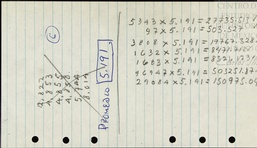 C
4.853
4.853
PROMEDIO 5.191
5343 x 5.191 = 27735.51
97 x 5.191 = 503.527
3808 x 5.191 = 19767.328
1632 x 5.191 = 8471.712
1603 x 5.191 = 8321.173
96947 x 5.191 = 503251.87
29084 x 5.191 = 150975.04